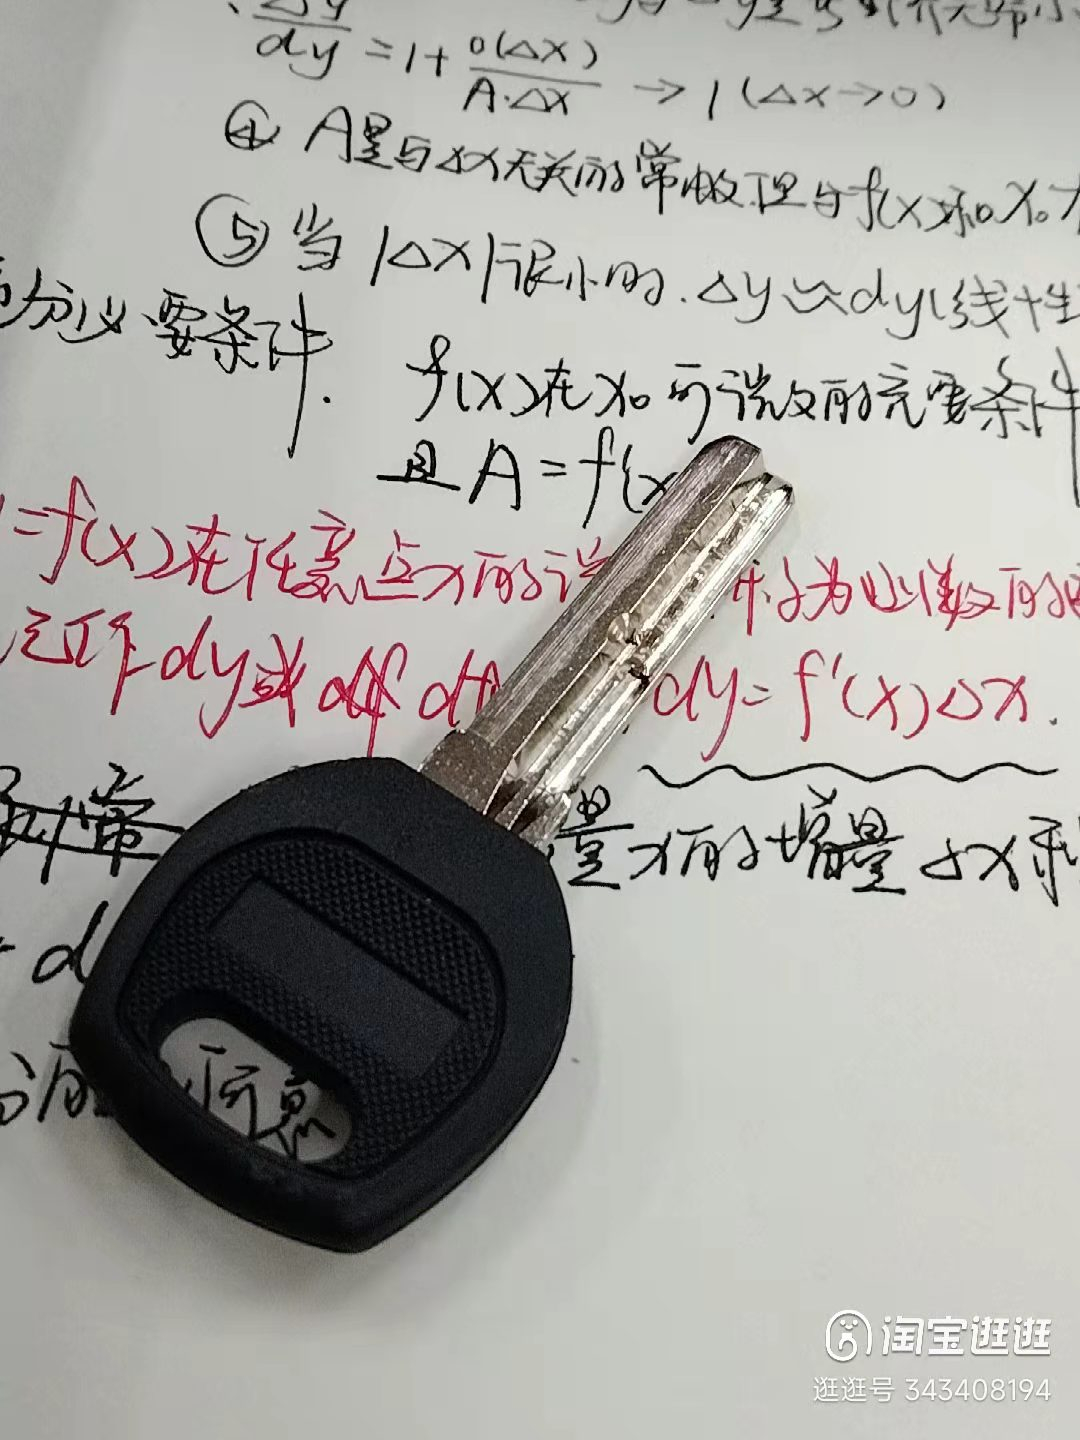 Δy/dy = 1 + o(Δx)/A·Δx → 1 (Δx→0)
④ A是与Δx无关的常数,但与f(x)和x₀
⑤ 当|Δx|很小时.Δy≈dy(线性
充分必要条件.
f(x)在x₀可微的充要条件
且A=f'(x
=f(x)在任意点x的 称为函数的
记作dy或df dy=f'(x)Δx.
常 量x的增量Δx称
d
分的
淘宝逛逛
逛逛号 343408194